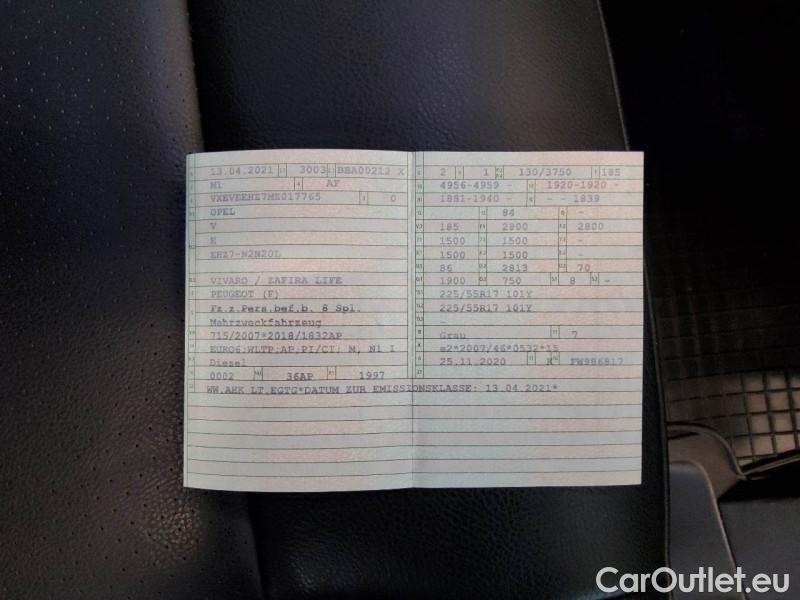 13.04.2021 3003 BBA00212 X
M1 AF
VXEVEEHZ7ME017765 0
OPEL
V
E
EHZ7-N2N20L
VIVARO / ZAFIRA LIFE
PEUGEOT (F)
Fz.z.Pers.bef.b. 8 Spl.
Mehrzweckfahrzeug
715/2007*2018/1832AP
EURO6;WLTP;AP;PI/CI; M, N1 I
Diesel
0002 36AP 1997
WW.AHK LT.EGTG*DATUM ZUR EMISSIONSKLASSE: 13.04.2021*
2 1 130/3750 185
4956-4959 - 1920-1920 -
1881-1940 - - - 1839
84 -
185 2800 2800
1500 1500 -
1500 1500 -
86 2813 70
1900 750 8 -
225/55R17 101Y
225/55R17 101Y
-
Grau 7
e2*2007/46*0532*15
25.11.2020 K FW986817
CarOutlet.eu